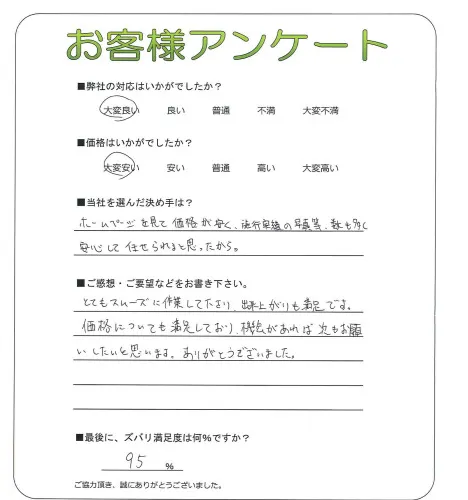 お客様アンケート
■弊社の対応はいかがでしたか?
大変良い 良い 普通 不満 大変不満
■価格はいかがでしたか?
大変安い 安い 普通 高い 大変高い
■当社を選んだ決め手は?
ホームページを見て価格が安く、施行実績の写真等、数も多く
安心して任せられると思ったから。
■ご感想・ご要望などをお書き下さい。
とてもスムーズに作業して下さり、出来上がりも満足です。
価格についても満足しており、機会があれば次もお願
いしたいと思います。ありがとうございました。
■最後に、ズバリ満足度は何%ですか?
95 %
ご協力頂き、誠にありがとうございました。